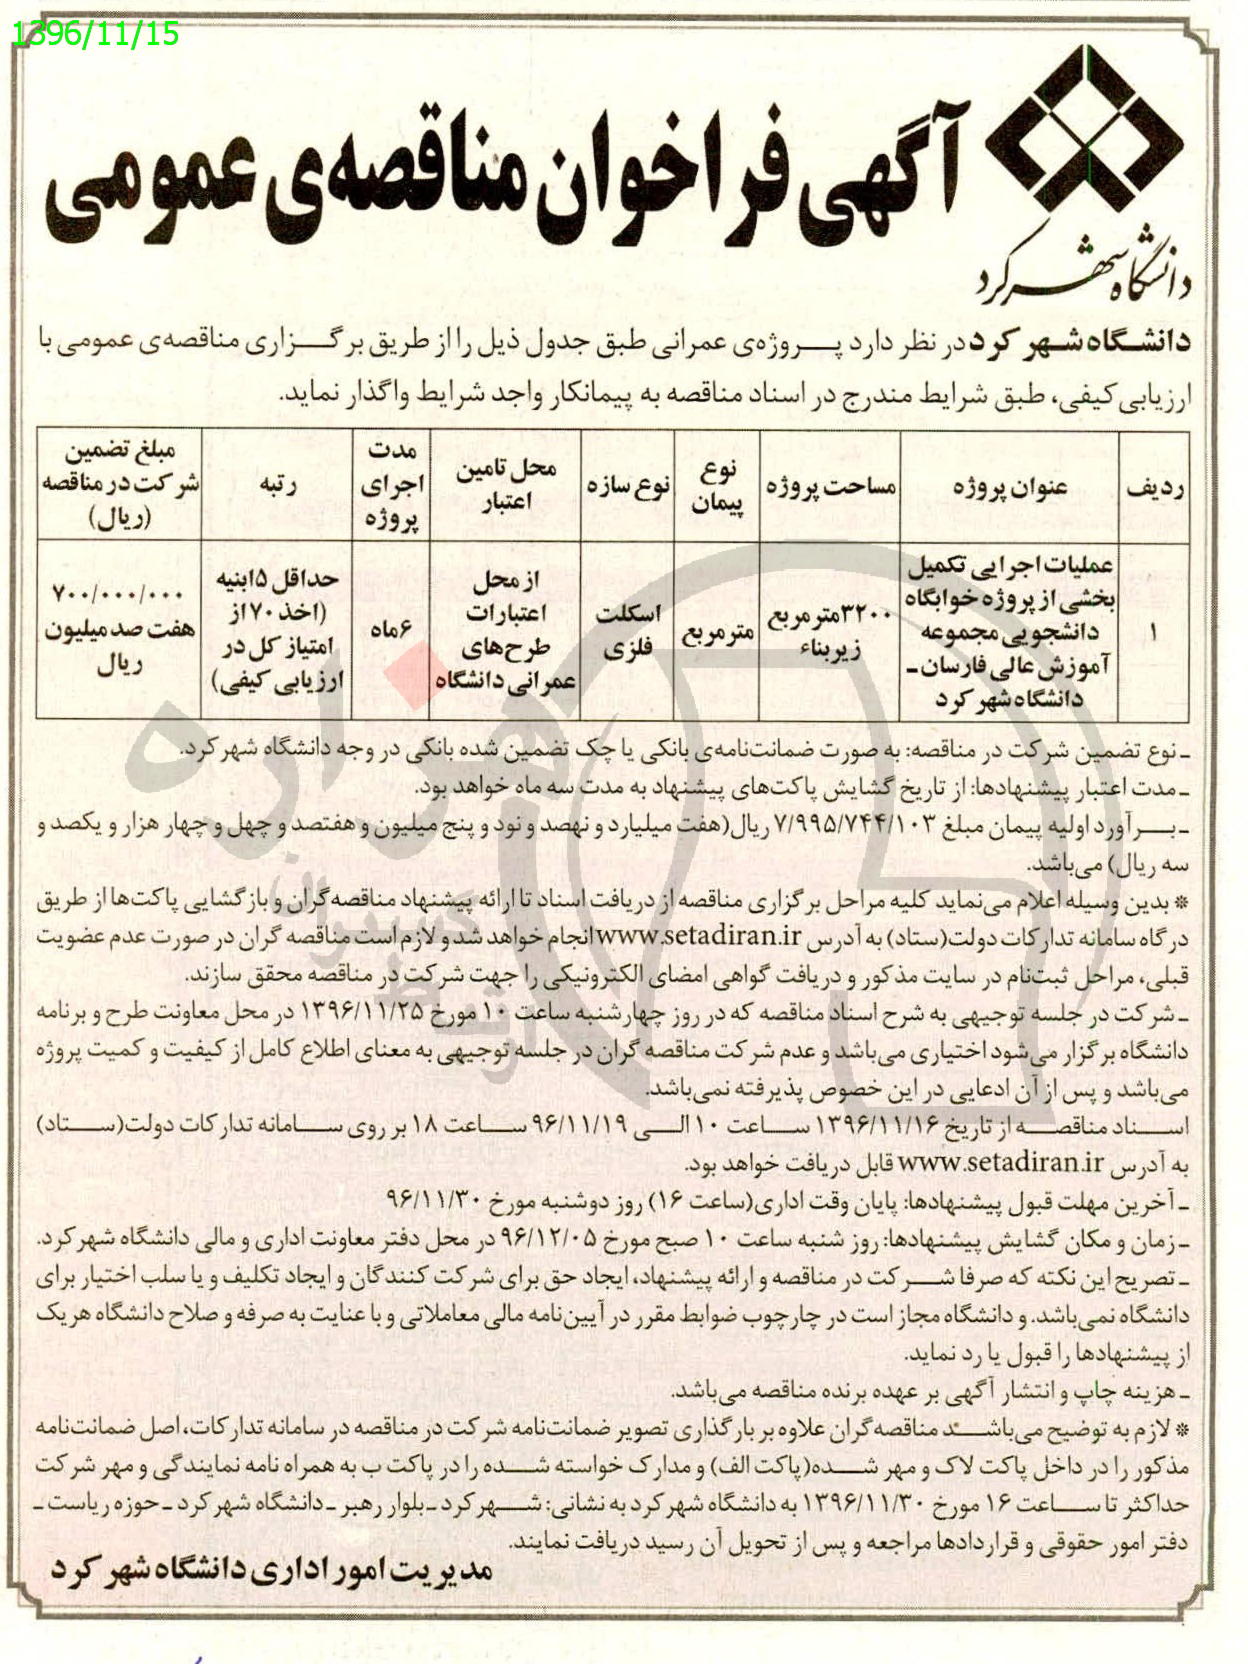 1396/11/15
آگهی فراخوان مناقصه‌ی عمومی
دانشگاه شهرکرد
دانشگاه شهر کرد در نظر دارد پروژه‌ی عمرانی طبق جدول ذیل را از طریق برگزاری مناقصه‌ی عمومی با
ارزیابی کیفی، طبق شرایط مندرج در اسناد مناقصه به پیمانکار واجد شرایط واگذار نماید.
ردیف
عنوان پروژه
مساحت پروژه
نوع
پیمان
نوع سازه
محل تامین
اعتبار
مدت
اجرای
پروژه
رتبه
مبلغ تضمین
شرکت در مناقصه
(ریال)
۱
عملیات اجرایی تکمیل
بخشی از پروژه خوابگاه
دانشجویی مجموعه
آموزش عالی فارسان-
دانشگاه شهر کرد
۳۲۰۰مترمربع
زیربناء
مترمربع
اسکلت
فلزی
از محل
اعتبارات
طرح‌های
عمرانی دانشگاه
۶ماه
حداقل ۵ابنیه
(اخذ ۷۰از
امتیاز کل در
ارزیابی کیفی)
۷۰۰/۰۰۰/۰۰۰
هفت صد میلیون
ریال
- نوع تضمین شرکت در مناقصه: به صورت ضمانت‌نامه‌ی بانکی یا چک تضمین شده بانکی در وجه دانشگاه شهرکرد.
- مدت اعتبار پیشنهادها: از تاریخ گشایش پاکت‌های پیشنهاد به مدت سه ماه خواهد بود.
- برآورد اولیه پیمان مبلغ ۷/۹۹۵/۷۴۴/۱۰۳ ریال(هفت میلیارد و نهصد و نود و پنج میلیون و هفتصد و چهل و چهار هزار و یکصد و
سه ریال) می‌باشد.
* بدین وسیله اعلام می‌نماید کلیه مراحل برگزاری مناقصه از دریافت اسناد تا ارائه پیشنهاد مناقصه‌گران و بازگشایی پاکت‌ها از طریق
درگاه سامانه تدارکات دولت(ستاد) به آدرس www.setadiran.ir انجام خواهد شد و لازم است مناقصه گران در صورت عدم عضویت
قبلی، مراحل ثبت‌نام در سایت مذکور و دریافت گواهی امضای الکترونیکی را جهت شرکت در مناقصه محقق سازند.
- شرکت در جلسه توجیهی به شرح اسناد مناقصه که در روز چهارشنبه ساعت ۱۰ مورخ ۱۳۹۶/۱۱/۲۵ در محل معاونت طرح و برنامه
دانشگاه برگزار می‌شود اختیاری می‌باشد و عدم شرکت مناقصه گران در جلسه توجیهی به معنای اطلاع کامل از کیفیت و کمیت پروژه
می‌باشد و پس از آن ادعایی در این خصوص پذیرفته نمی‌باشد.
اسناد مناقصه از تاریخ ۱۳۹۶/۱۱/۱۶ ساعت ۱۰ الی ۹۶/۱۱/۱۹ ساعت ۱۸ بر روی سامانه تدارکات دولت(ستاد)
به آدرس www.setadiran.ir قابل دریافت خواهد بود.
- آخرین مهلت قبول پیشنهادها: پایان وقت اداری(ساعت ۱۶) روز دوشنبه مورخ ۹۶/۱۱/۳۰
- زمان و مکان گشایش پیشنهادها: روز شنبه ساعت ۱۰ صبح مورخ ۹۶/۱۲/۰۵ در محل دفتر معاونت اداری و مالی دانشگاه شهرکرد.
- تصریح این نکته که صرفا شرکت در مناقصه و ارائه پیشنهاد، ایجاد حق برای شرکت کنندگان و ایجاد تکلیف و یا سلب اختیار برای
دانشگاه نمی‌باشد. و دانشگاه مجاز است در چارچوب ضوابط مقرر در آیین‌نامه مالی معاملاتی و با عنایت به صرفه و صلاح دانشگاه هر یک
از پیشنهادها را قبول یا رد نماید.
- هزینه چاپ و انتشار آگهی بر عهده برنده مناقصه می‌باشد.
* لازم به توضیح می‌باشد مناقصه‌گران علاوه بر بارگذاری تصویر ضمانت‌نامه شرکت در مناقصه در سامانه تدارکات، اصل ضمانت‌نامه
مذکور را در داخل پاکت لاک و مهر شده(پاکت الف) و مدارک خواسته شده را در پاکت ب به همراه نامه نمایندگی و مهر شرکت
حداکثر تا ساعت ۱۶ مورخ ۱۳۹۶/۱۱/۳۰ به دانشگاه شهرکرد به نشانی: شهرکرد -بلوار رهبر -دانشگاه شهرکرد -حوزه ریاست -
دفتر امور حقوقی و قراردادها مراجعه و پس از تحویل آن رسید دریافت نمایند.
مدیریت امور اداری دانشگاه شهر کرد